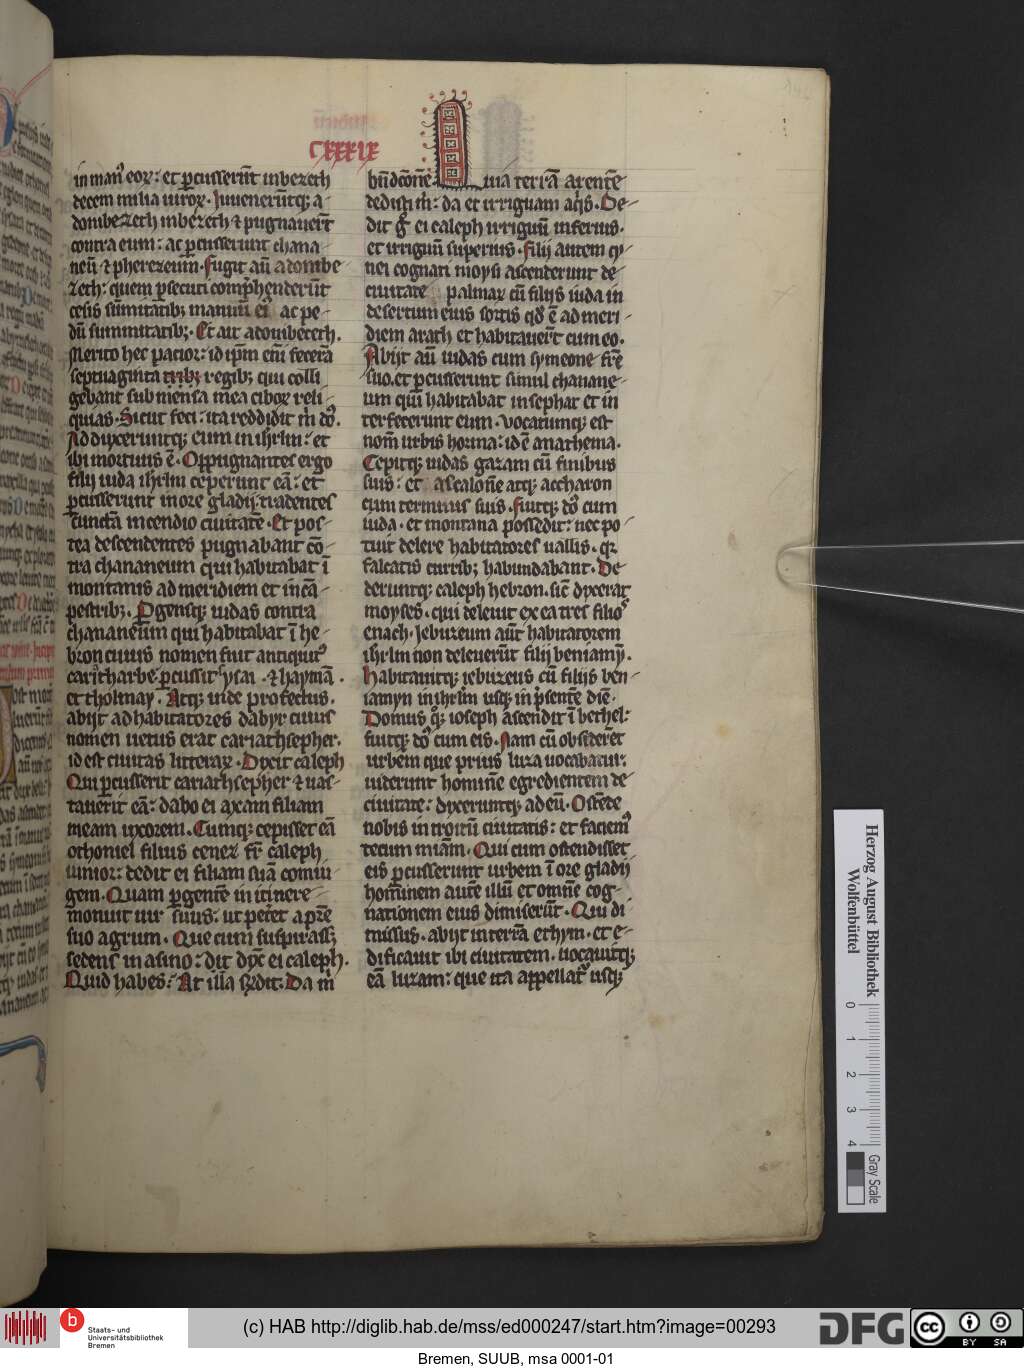 CXXXIX
in manꝰ eoꝝ: et ꝑcusserūt in bezech
decem milia uiroꝝ. Inueneruntqꝫ a-
donibezech in bezech ⁊ pugnauer̄t
contra eum: ac ꝑcusserunt chana-
neū ⁊ pherezeum. fugit aū adonibe
zech: quem ꝑsecuti comp̄henderūt
cesis sūmitatibꝫ manuū eiꝰ ac pe-
dū summitatibꝫ. Et ait adonibezech.
Merito hec patior: id ip̄m em̄ fecerā
septuaginta tribꝫ regibꝫ qui colli
gebant sub mensa mea ciboꝝ reli-
quias. Sicut feci: ita reddidit m̄ dc̄s.
Adduxeruntqꝫ eum in ihrl̄m: et
ibi mortuus ē. Oppugnantes ergo
filij iuda ihrl̄m ceperunt eā: et
ꝑcusserunt in ore gladij. tradentes
cunctā incendio ciuitatē. Et pos-
tea descendentes pugnabant cō-
tra chananeum qui habitabat ī
montanis ad meridiem et in cā-
pestribꝫ. Pgensqꝫ iudas contra
chananeum qui habitabat ī he-
bron cuius nomen fuit antiquitꝰ
cariatharbe ꝑcussit sysai . ⁊ haymā .
et tholmay. Atqꝫ inde profectus.
abijt ad habitatores dabyr cuius
nomen uetus erat cariathsepher.
id est ciuitas litteraꝝ. Dixit caleph
Qui ꝑcusserit cariathsepher ⁊ uas-
tauerit eā: dabo ei axam filiam
meam uxorem. Cumqꝫ cepisset eā
othoniel filius cenez fr̄ caleph
iunior: dedit ei filiam suā coniu-
gem. Quam ꝑgentē in itinere-
monuit uir suus: ut petet a pr̄e
suo agrum. Que cum suspirass;
sedens in asino: dix̄ ei caleph.
Quid habes: At illa r̄ndit. Da m̄
bn̄dcōnē. Quia terrā arentē
dedisti m̄: da et irriguam aq̄s. De-
dit ḡ ei caleph irriguū inferius.
et irriguū superius. filij autem cy-
nei cognati moysi ascenderunt de-
ciuitate palmaꝝ cū filijs iuda in
desertum eius sortis qd̄ ē ad meri-
diem arath et habitauer̄t cum eo.
Abijt aū iudas cum symeone fr̄e
suo. et ꝑcusserunt simul chanane-
um qui habitabat in sephat et in
terfecerunt eum. Vocatumqꝫ est
nom̄ urbis horma: id ē anathema.
Cepitqꝫ iudas gazam cū finibus
suis: et ascalonē atqꝫ accharon
cum terminis suis. fuitqꝫ dc̄s cum
iuda. et montana possedit: nec po-
tuit delere habitatores uallis. qꝛ
falcatis curribꝫ habundabant. De-
deruntqꝫ caleph hebron. sic̄ dixerat
moyses. qui deleuit ex ea tres filios
enach. Iebuzeum aūt habitatorem
ihrl̄m non deleuerūt filij beniamȳ.
Habitauitqꝫ iebuzeus cū filijs ben-
iamyn in ihrl̄m usqꝫ in p̄sentē diē.
Domus qꝫ ioseph ascendit ī bethel:
fuitqꝫ dc̄s cum eis. Nam cū obsider̄et
urbem que prius luza uocabatur.
uiderunt hominē egredientem de-
ciuitate: dixeruntqꝫ ad eū. Ostēde
nobis introitū ciuitatis: et faciemꝰ
tecum miām. Qui cum ostendisset
eis ꝑcusserunt urbem ī ore gladij
hominem autē illū et omnē cog-
nationem eius dimiserūt. Qui di
missus. abijt in terrā ethym. et e-
dificauit ibi ciuitatem. uocauitqꝫ
eā luzam: que ita appellatꝰ usqꝫ
Herzog August Bibliothek
Wolfenbüttel
0 1 2 3 4
Gray Scale
b
Staats- und
Universitätsbibliothek
Bremen
(c) HAB http://diglib.hab.de/mss/ed000247/start.htm?image=00293
DFG
cc BY SA
Bremen, SUUB, msa 0001-01